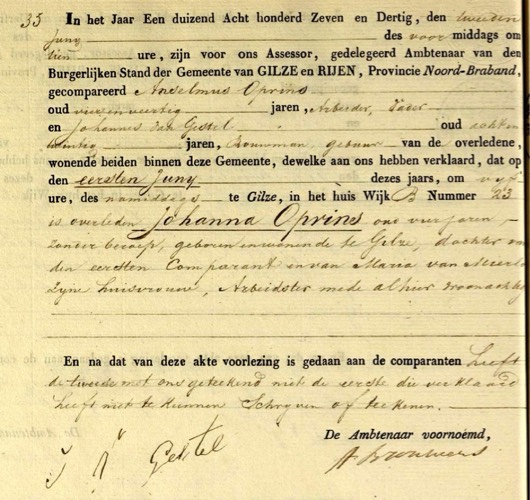 35 In het Jaar Een duizend Acht honderd Zeven en Dertig, den tweeden
Juny des voor middags om
tien ure, zijn voor ons Assessor, gedelegeerd Ambtenaar van den
Burgerlijken Stand der Gemeente van GILZE en RIJEN, Provincie Noord-Braband,
gecompareerd Anselmus Oprins
oud vierenveertig jaren, Arbeider, Vader
en Johannes Van Gestel oud achten
twintig jaren, Bouwman gebuur van de overledene,
wonende beiden binnen deze Gemeente, dewelke aan ons hebben verklaard, dat op
den eersten Juny dezes jaars, om vyf
ure, des namiddags te Gilze, in het huis Wijk B Nummer 23
is overleden Johanna Oprins oud vier jaren,
zonder beroep, geboren en wonende te Gilze, dochter van
den eersten Comparant en van Maria van
zyne huisvrouw, Arbeidster mede alhier woonachtig
En na dat van deze akte voorlezing is gedaan aan de comparanten heeft
de tweede met ons geteekend niet de eerste die verklaard
heeft niet te kunnen Schryven of teekenen.
De Ambtenaar voornoemd,
J V Gestel